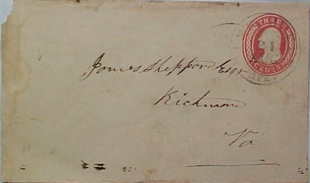 THREE
CENTS
James Sheppard Esqr
Richmond
Va
10